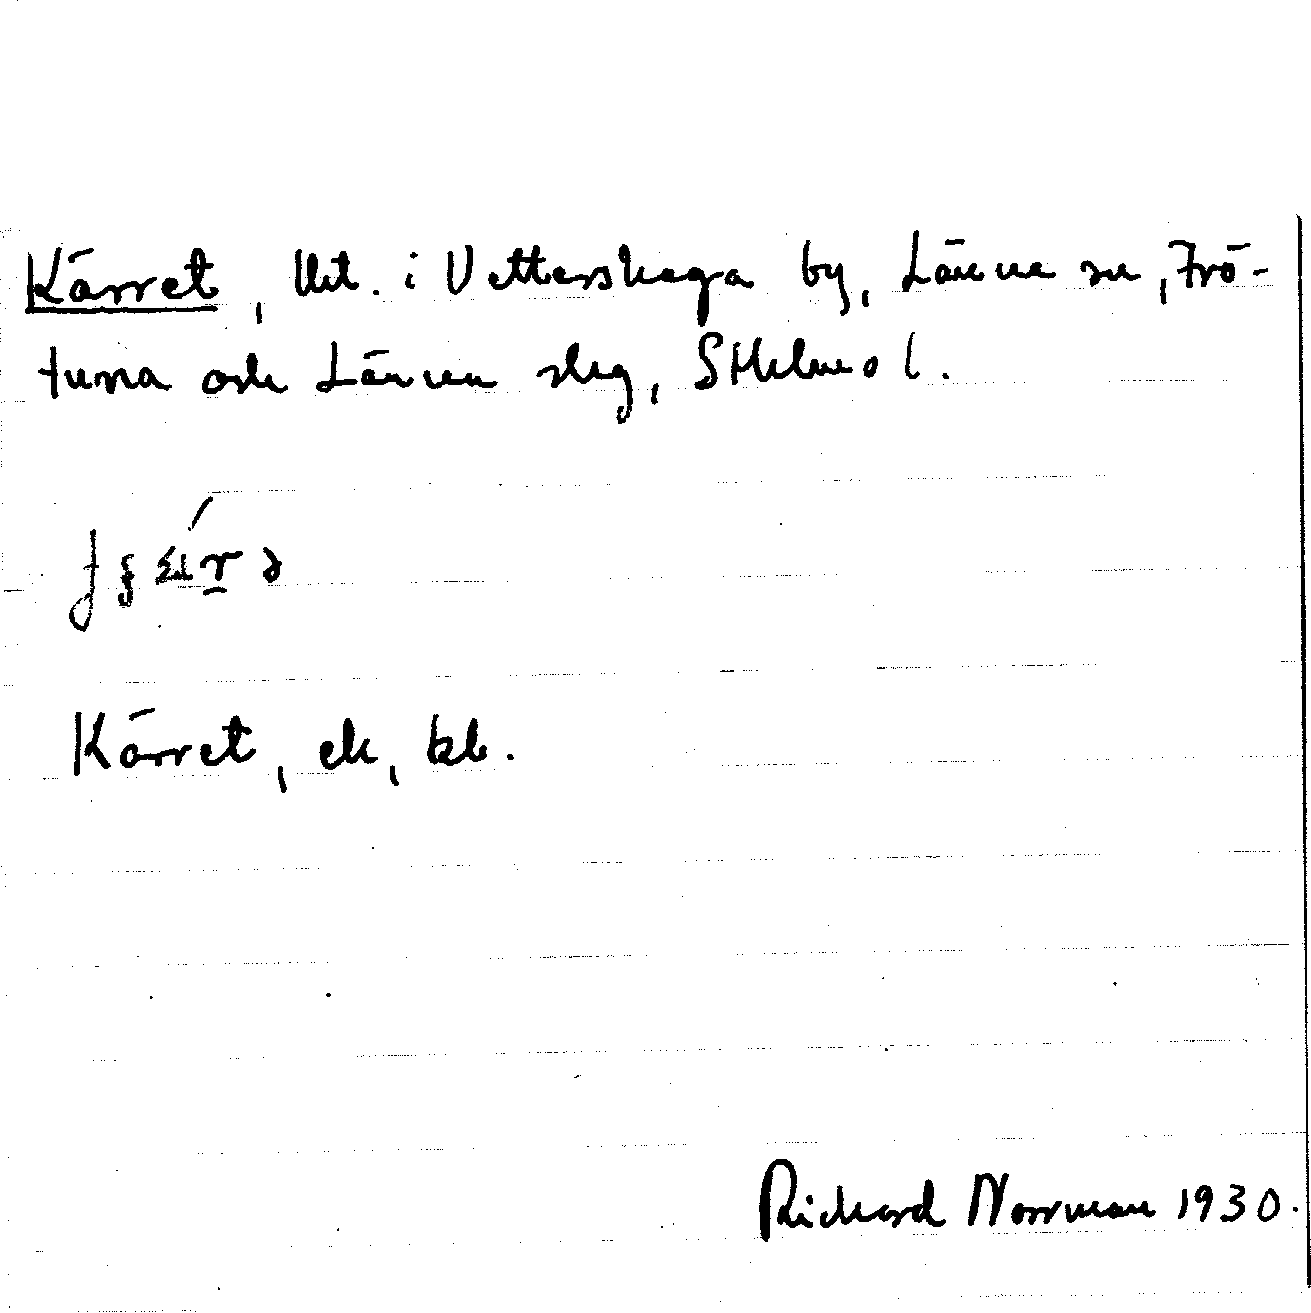 Kärret, lht. i Vettershaga by, Länna sn, Frö-
tuna och Länna skg, Sthlms l.
Kärret, ek, kb.
Richard Norrman 1930.